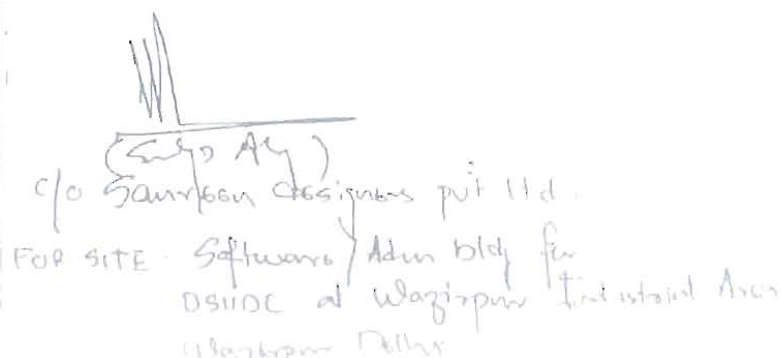 c/o designers pvt ltd.
FOR SITE : Software / Admn bldg for
DSIIDC at Wazirpur Industrial Area
Wazirpur Delhi